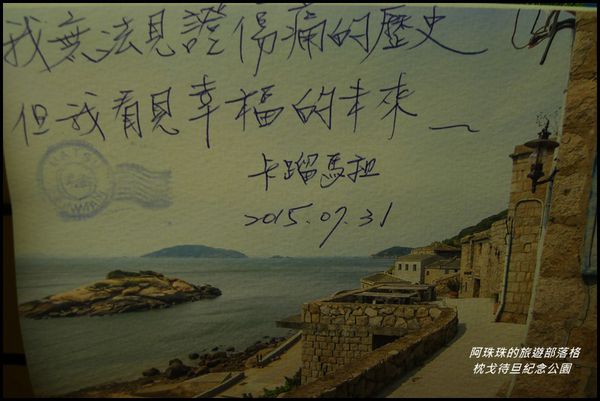 我無法見證傷痛的歷史
但我看見幸福的未來～
卡蹓馬祖
2015.07.31
阿珠珠的旅遊部落格
枕戈待旦紀念公園